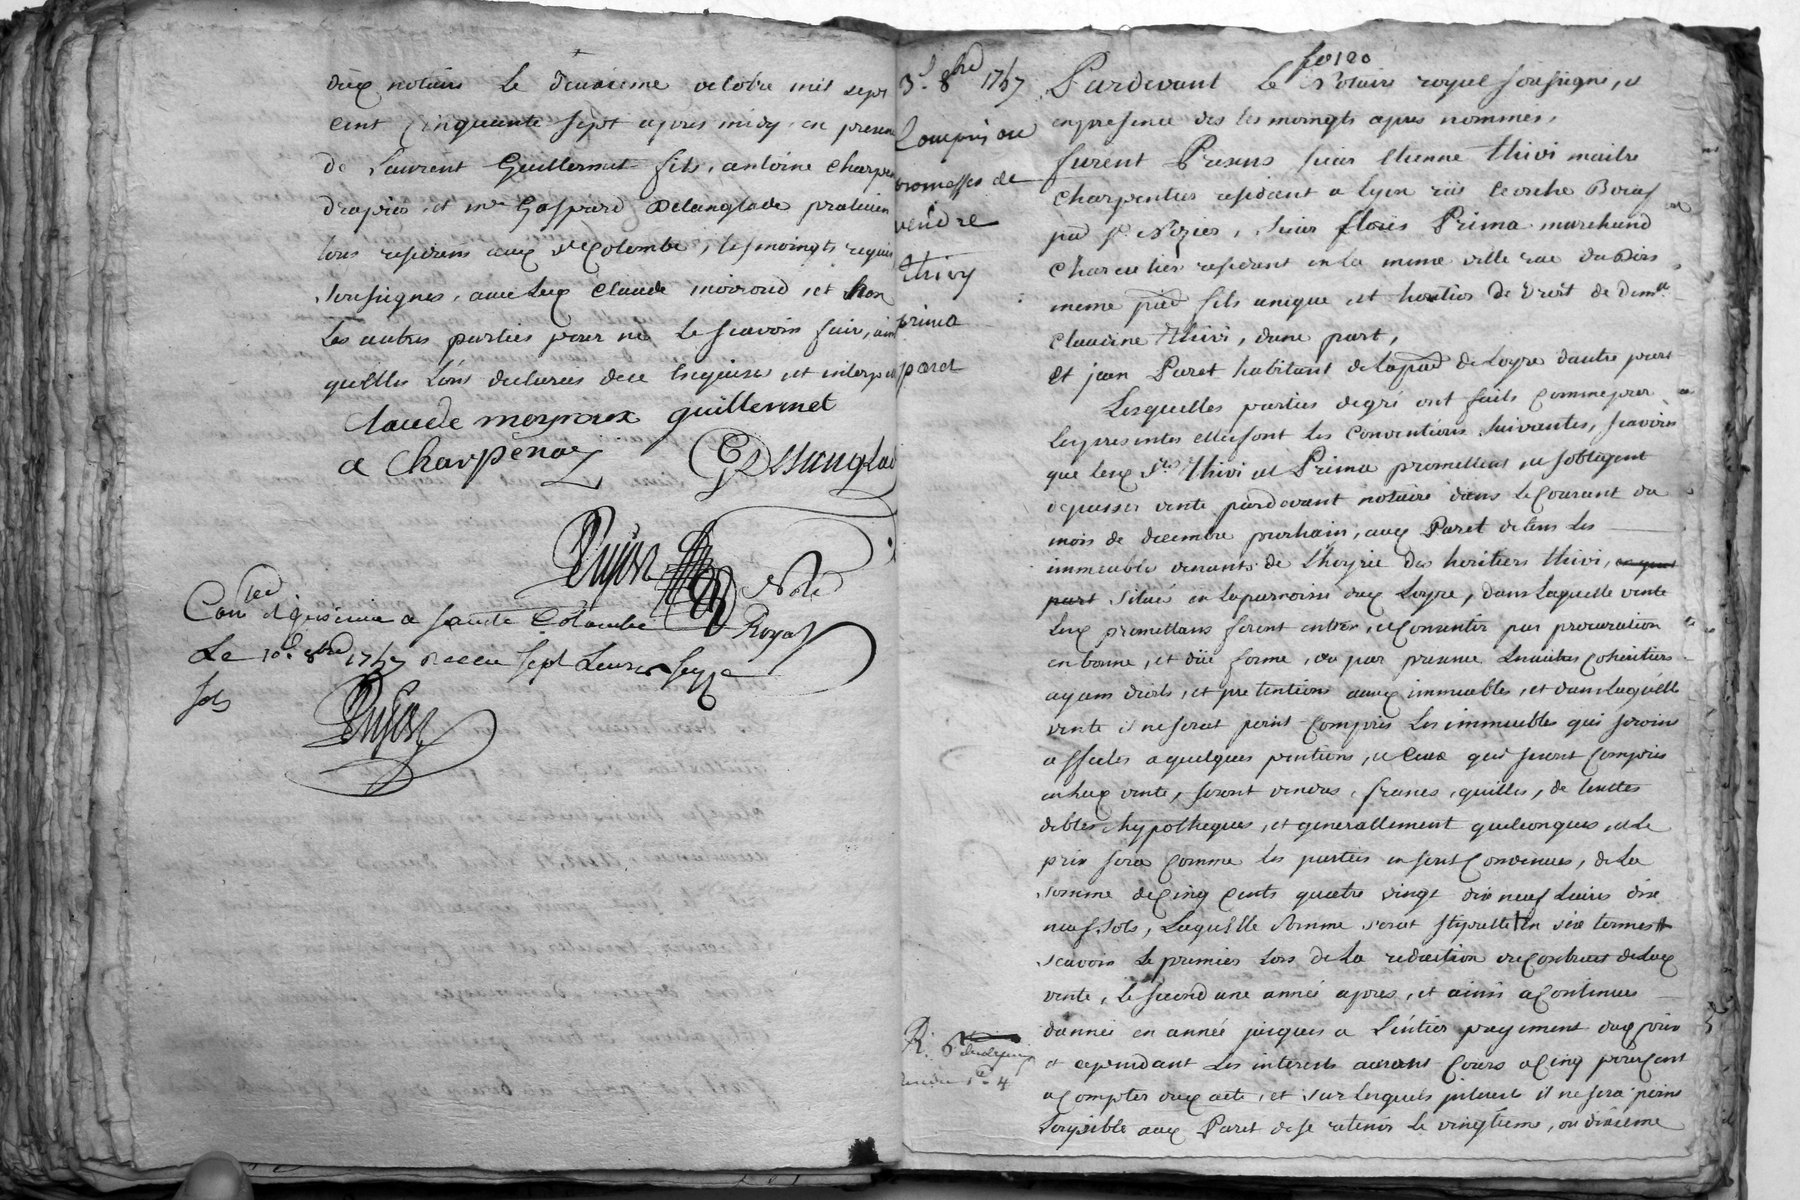 dux notaire le deuxieme octobre mil sept
cent cinquante sept apres midy en presence
de Laurent Guillermet fils, antoine charpenay
drapier et mre Gaspard Delanglade praticien
tous residens aux Ste Colombe, tesmoingts requis
soussignes, avec lux Claude moiroud, et non
Les autres parties pour ne le scavoir fair, ainsi
quelles L'ont declarées dece Enquises et interp
claude moyroux guillermet
a Charpenay G Delanglad
Dujon Nore
Royal
Conlled et insinué a sainte Colombe
Le 10e 8bre 1757 Receu sept Livres seize
sols
Dujon
3e 8bre 1757
Compris ou
promesses de
vendre
thivy
prima
paret
R. 6
fo 120
Pardevant le Notaire royal soussigné, et
en presence des tesmoingts apres nommes,
furent Presens sieur etienne thivi maitre
charpentier residant a lyon rüe
psse st Nizier, sieur floris Prima marchand
charcutier residant en la meme ville rue du Bois
meme psse fils unique et heritier de droit de demlle
claudine thivi, dune part,
et jean Paret habitant de la psse de Loyre dautre part
Lesquelles parties degré ont faits comme par
les presentes elles font les conventions suivantes, scavoir
que leux srs thivi et Prima promettent, et soblegent
de passer vente pardevant notaire dans le courant du
mois de decembre prochain, aux Paret de tous les
immeuble venants de L'hoyrie des heritiers thivi,
situé en la parroisse dux Loyre, dans laquelle vente
Lux promettans feront entrer, et consentir par procuration
en bonne, et düe forme, ou par presence Lesautres coheritiers
ayans droits, et pretentions auux immeubles, et dans laquelle
vente il ne serat point compris les immeubles qui seroint
affectes a quelques pentions, et ceux qui seront compris
en lux vente, seront vendus, francs, quittes, de touttes
debtes hypotheques, et generallement quelconques, et le
prix sera comme les parties en sont convenues, de la
somme de cinq cents quatre vingt dix neuf Livres dix
neuf sols, Laquelle somme serat stipulée en six termes
scavoir le premier lors de la redaction du contract de lux
vente, le second une année apres, et ainsi a continuer
dannée en année jusques a L'entier payement dux prix
et cependant Les interests auront cours a cinq pour cent
a compter dux acte, et sur lesquels interests il ne sera point
Loysible aux Paret de se retenir le vingtieme, ou dixieme